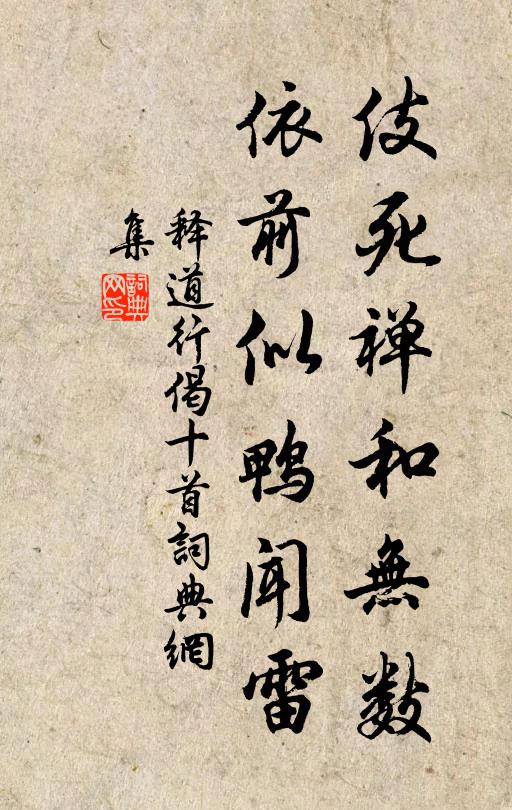 伎死禅和無数
依前似鴨闻雷
释道行偈十首詞典網
集
詞典网印